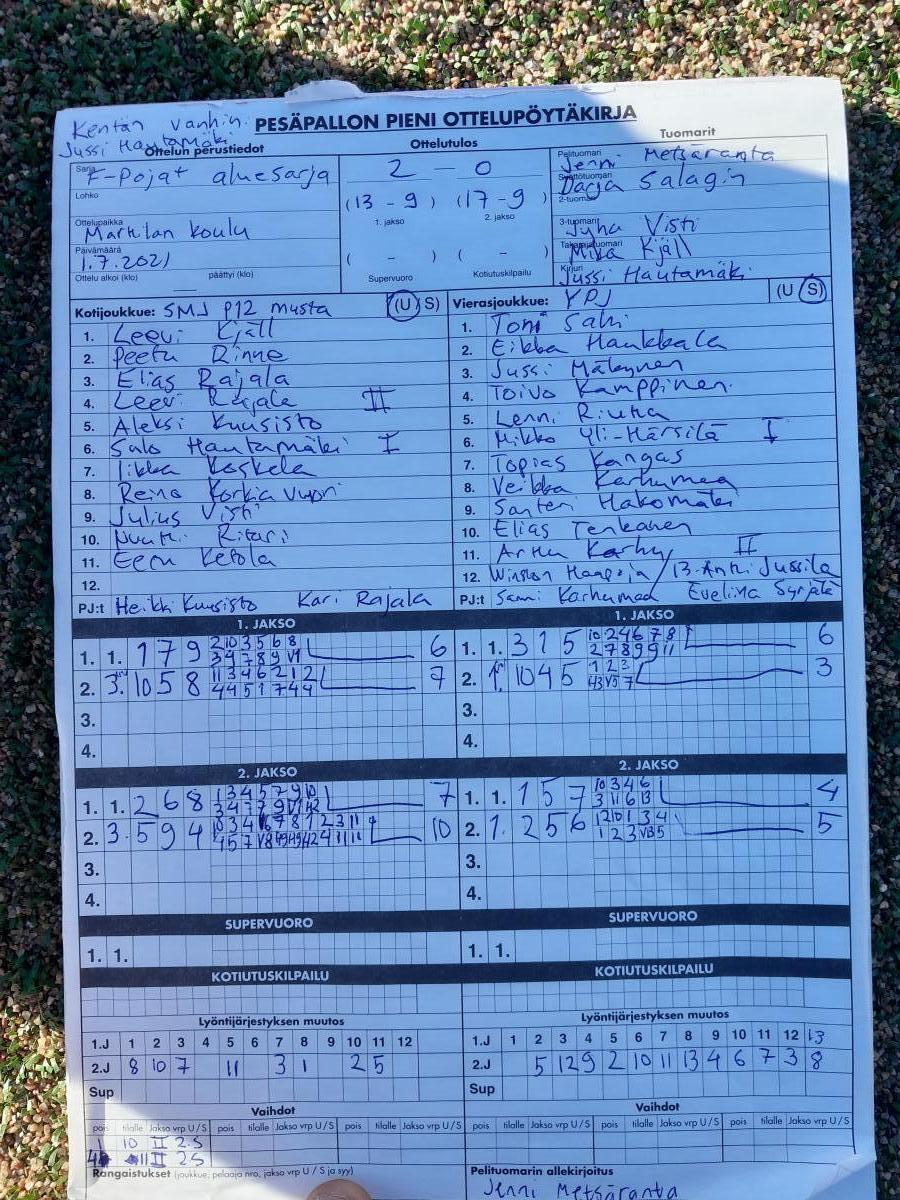 Kentän vanhin
Jussi Hautamäki
PESÄPALLON PIENI OTTELUPÖYTÄKIRJA
Ottelun perustiedot
Ottelutulos
Tuomarit
Sarja F-Pojat aluesarja
Lohko
Ottelupaikka Marttilan koulu
Päivämäärä 1.7.2021
Ottelu alkoi (klo) päättyi (klo)
2 - 0
(13 - 9) (17 - 9)
1. jakso 2. jakso
( - ) ( - )
Supervuoro Kotiutuskilpailu
Pelituomari Jenni Metsäranta
Syöttötuomari Darja Salagin
2-tuomari
3-tuomari Juha Visti
Takarajatuomari Mika Kjäll
Kirjuri Jussi Hautamäki
Kotijoukkue: SMJ P12 musta (U S)
1. Leevi Kjäll
2. Peetu Rinne
3. Elias Rajala
4. Leevi Rajala II
5. Aleksi Kuusisto
6. Salo Hautamäki I
7. Iikka Koskela
8. Reino Korkiavuori
9. Julius Visti
10. Nuutti Ritari
11. Eeru Ketola
12.
PJ:t Heikki Kuusisto Kari Rajala
Vierasjoukkue: YPJ (U S)
1. Toni Sahi
2. Eikka Haukkala
3. Jussi Mäkynen
4. Toivo Kamppinen
5. Lenni Riutta
6. Mikko Yli-Härsilä I
7. Topias Kangas
8. Veikka Karhumaa
9. Santeri Hakomäki
10. Elias Tenkanen
11. Arttu Karhu II
12. Winston Haapoja / 13. Antti Jussila
PJ:t Sami Karhumaa Evelina Syrjälä
1. JAKSO
1. 1. 1 7 9 2 10 3 5 6 8 6
3 4 7 8 9 V1
2. 3. 10 5 8 11 3 4 6 2 1 2 7
4 4 5 1 7 4 4
3.
4.
1. JAKSO
1. 1. 3 1 5 10 2 4 6 7 8 6
2 7 8 9 9 11
2. 1. 10 4 5 1 2 3 3
V5 7
3.
4.
2. JAKSO
1. 1. 2 6 8 1 3 4 5 7 9 10 7
3 4 7 7 9
2. 3. 5 9 4 10 3 4 7 8 1 2 3 11 10
4 5 7 V8 4 11 11
3.
4.
2. JAKSO
1. 1. 1 5 7 10 3 4 6 4
3 11 6 13
2. 1. 2 5 6 12 10 1 3 4 5
1 2 3 V13 5
3.
4.
SUPERVUORO
1. 1.
SUPERVUORO
1. 1.
KOTIUTUSKILPAILU
KOTIUTUSKILPAILU
Lyöntijärjestyksen muutos
1.J 1 2 3 4 5 6 7 8 9 10 11 12
2.J 8 10 7 11 3 1 2 5
Sup
Lyöntijärjestyksen muutos
1.J 1 2 3 4 5 6 7 8 9 10 11 12 13
2.J 5 12 9 2 10 11 13 4 6 7 3 8
Sup
Vaihdot
pois tilalle Jakso vrp U/S pois tilalle Jakso vrp U/S pois tilalle Jakso vrp U/S
1 10 II 2.S
4 11 II 2S
Vaihdot
pois tilalle Jakso vrp U/S pois tilalle Jakso vrp U/S pois tilalle Jakso vrp U/S
Rangaistukset (joukkue, pelaaja nro, jakso vrp U / S ja syy)
Pelituomarin allekirjoitus
Jenni Metsäranta